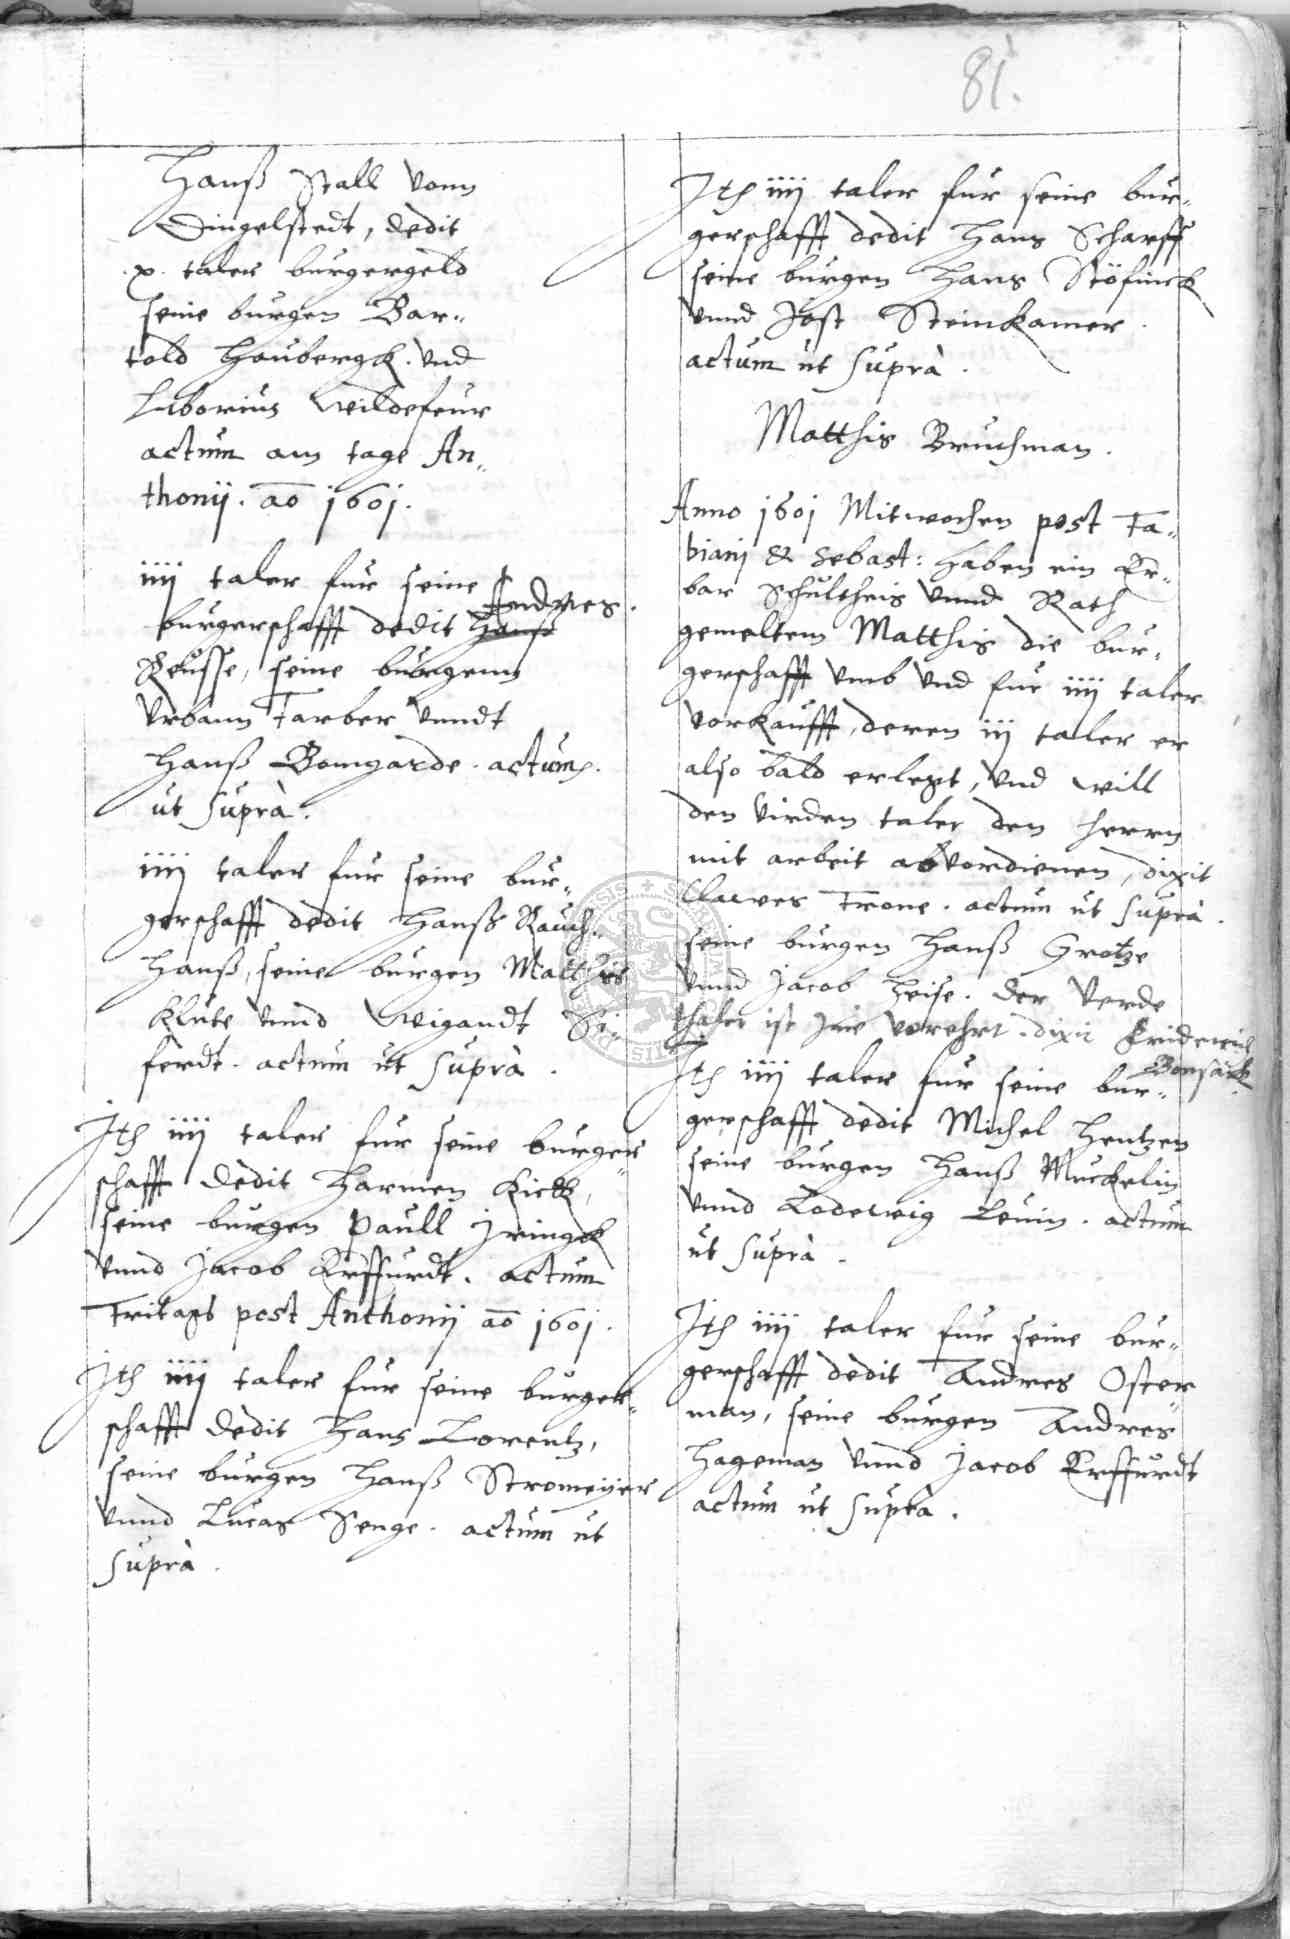 81.
Hanß Stall vonn
Dingelstedt, dedit
.x. taler burgergeld
seine burgen Bar=
told Haubergk. vnd
Liborius Wildefeur
actum am tage An=
thonij. ao 1601.
iiij taler fur seine
Andres.
burgerschafft dedit Hanß
Reusse, seine burgenn
Urbann Farber vnndt
Hanß Bomgarde. actum
ut supra.
iiij taler fur seine bur=
gerschafft dedit Hanß Rauch=
Hanß, seine burgen Matthis
Klute vnnd Weigandt Si=
ferdt. actum ut supra.
Ith iiij taler fur seine burger=
schafft dedit Harmen Kick,
seine burgen Paull Iringk
vnnd Jacob Erffurdt. actum
Fritags post Anthonij ao 1601.
Ith iiij taler fur seine burger=
schafft dedit Hans Lorentz,
seine burgen Hanß Stromeijer
vnnd Lucas Senge. actum ut
supra.
Ith iiij taler fur seine bur=
gerschafft dedit Hans Scharff
seine burgen Hans Stöfinck
vnnd Jost Steinkamer.
actum ut supra.
Matthis Bruchman.
Anno 1601 Mitwochen post Fa=
biani & Sebast: haben ein Er=
bar Schultheis vnnd Rath
gemeltem Matthis die bur=
gerschafft vmb vnd fur iiij taler
vorkaufft, deren iij taler er
also bald erlegt, vnd will
den virden taler den herrn
mit arbeit abvordienen, dixit
Clawes Trone. actum ut supra.
seine burgen Hanß Grotze
vnnd Jacob Heise. der verde
thaler ist Ime vorehrt. dixit Friderich
Bonsack
Ith iiij taler fur seine bur=
gerschafft dedit Michel Hentzen
seine burgen Hanß Muckelin
vnnd Lodewig Levin. actum
ut supra.
Ith iiij taler fur seine bur=
gerschafft dedit Andres Oster=
man, seine burgen Andres
Hageman vnnd Jacob Erffurdt
actum ut supra.